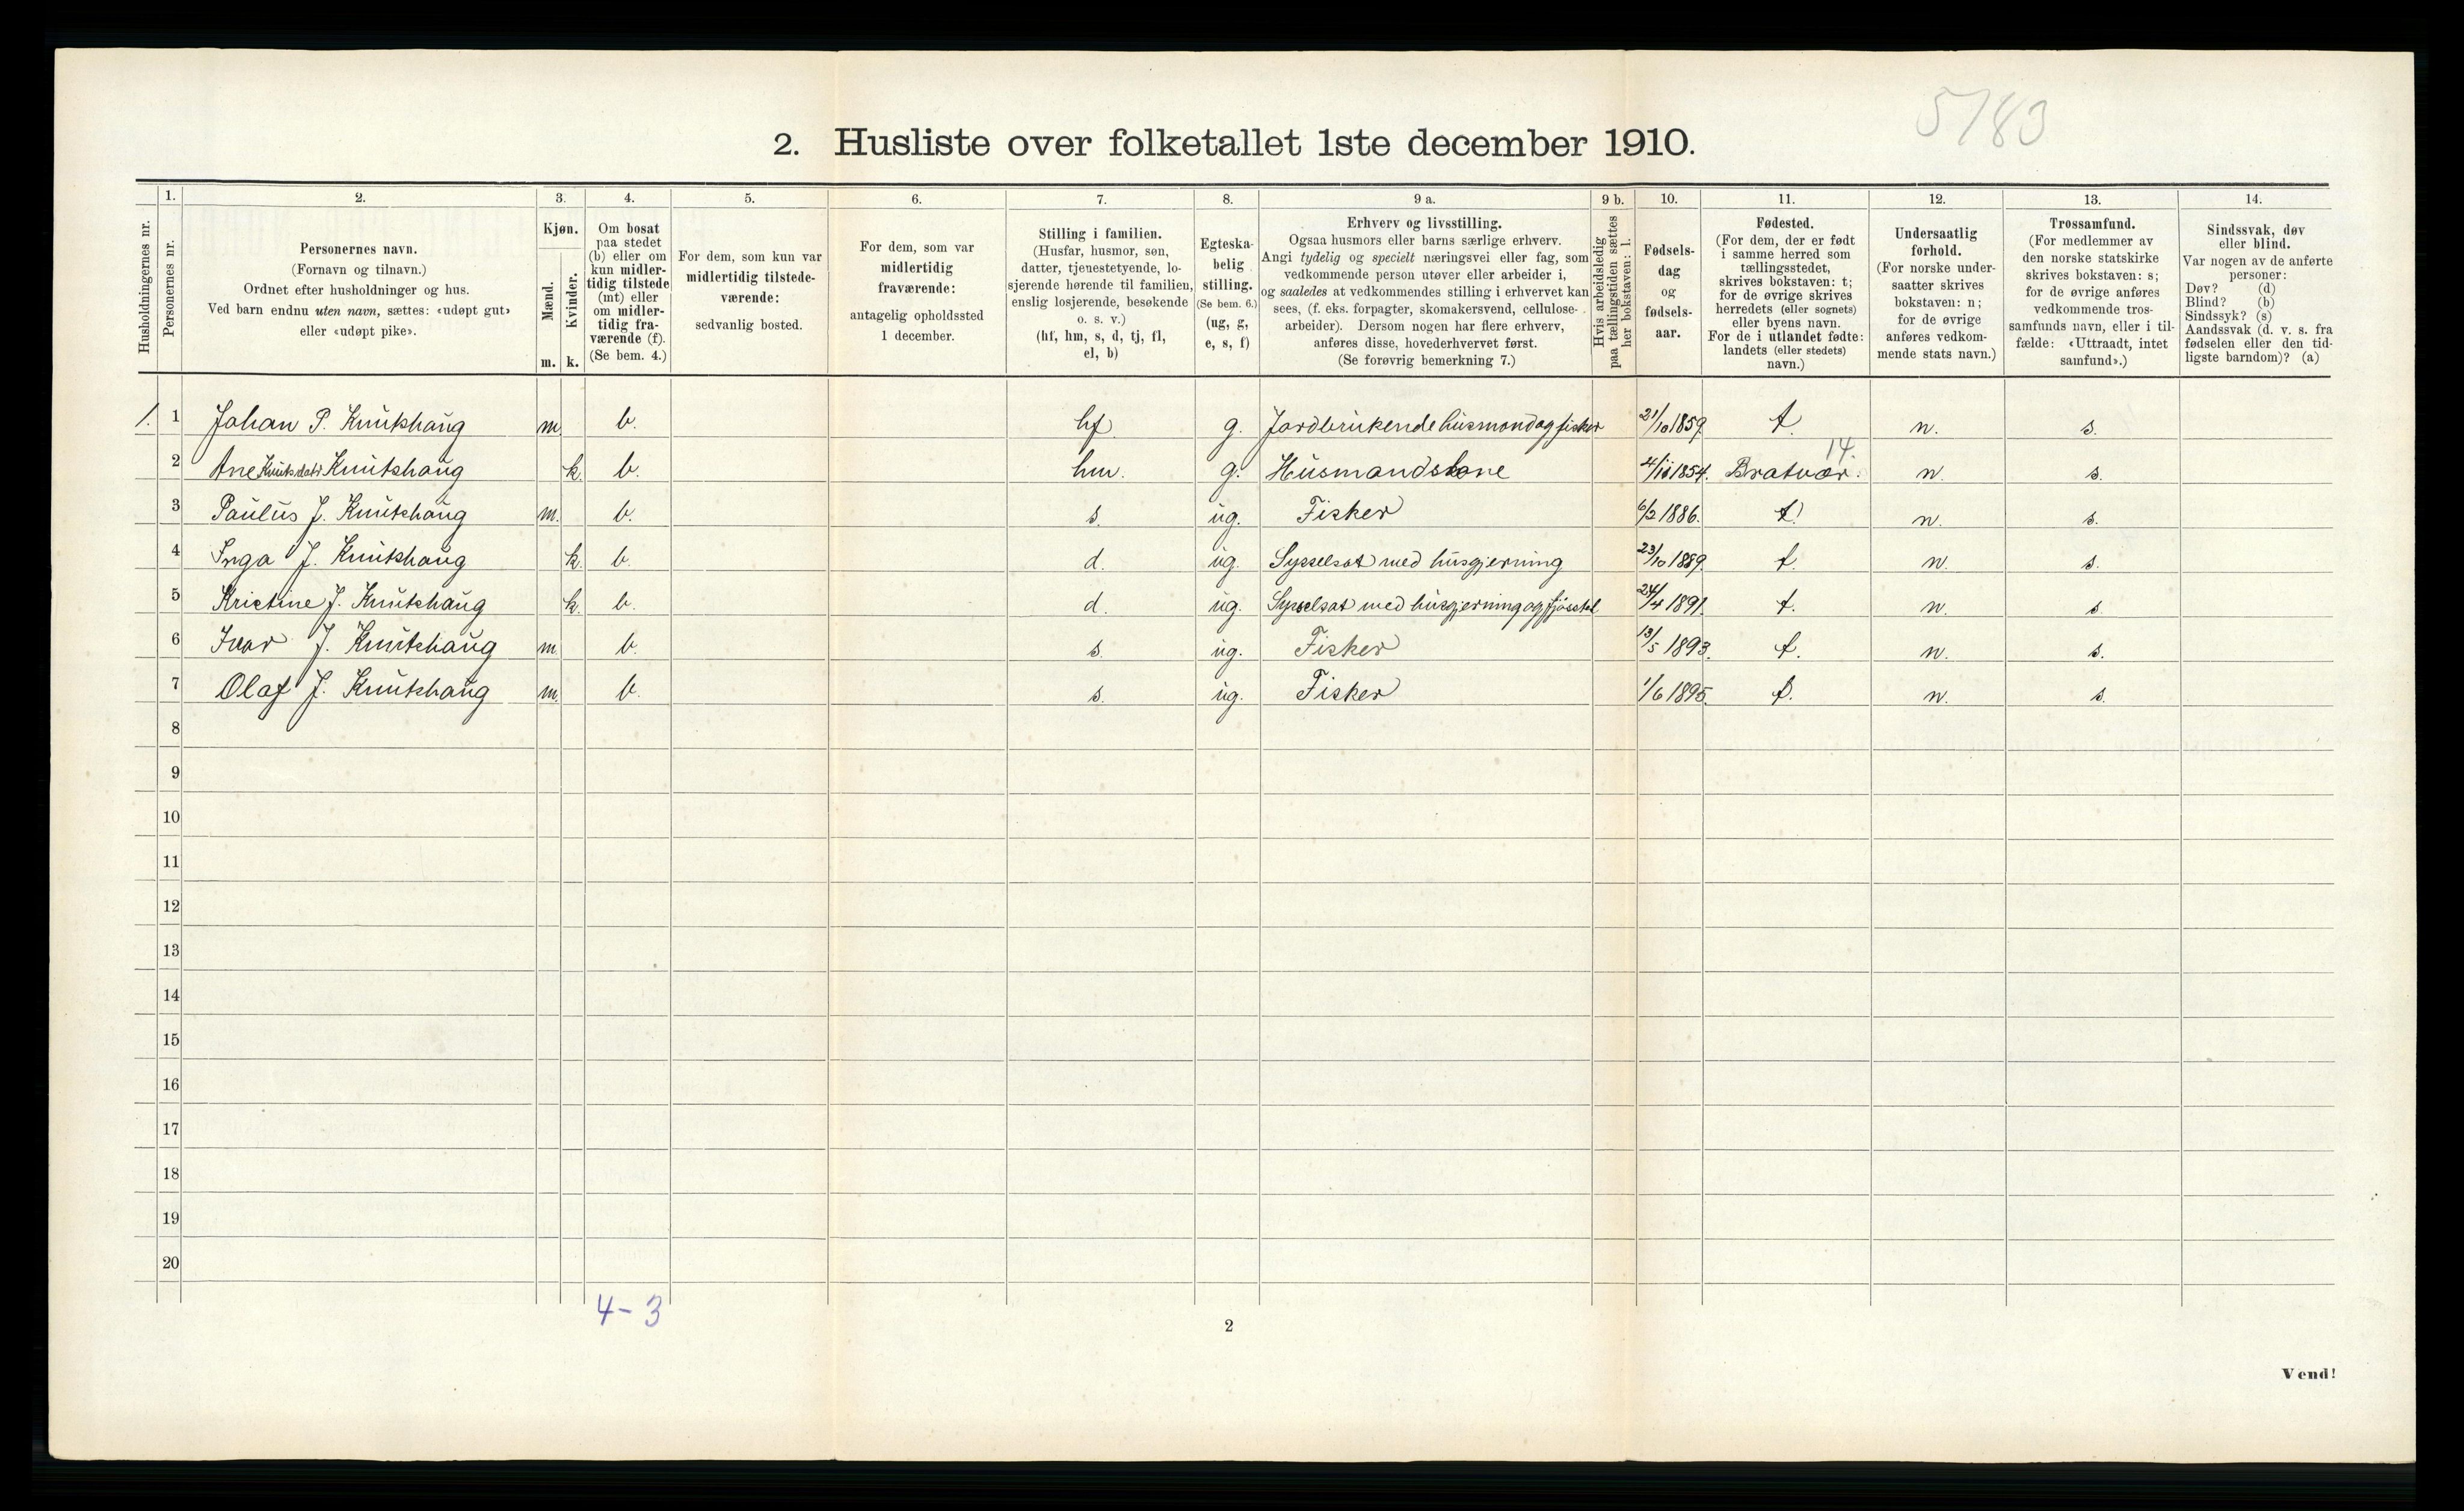 5783
2. Husliste over folketallet 1ste december 1910.
Husholdningernes nr.
1.
Personernes nr.
2.
Personernes navn.
(Fornavn og tilnavn.)
Ordnet efter husholdninger og hus.
Ved barn endnu uten navn, sættes: «udøpt gut»
eller «udøpt pike».
3.
Kjøn.
Mænd.
m.
Kvinder.
k.
4.
Om bosat
paa stedet
(b) eller om
kun midler-
tidig tilstede
(mt) eller
om midler-
tidig fra-
værende (f).
(Se bem. 4.)
5.
For dem, som kun var
midlertidig tilstede-
værende:
sedvanlig bosted.
6.
For dem, som var
midlertidig
fraværende:
antagelig opholdssted
1 december.
7.
Stilling i familien.
(Husfar, husmor, søn,
datter, tjenestetyende, lo-
sjerende hørende til familien,
enslig losjerende, besøkende
o. s. v.)
(hf, hm, s, d, tj, fl,
el, b)
8.
Egteska-
belig
stilling.
(Se bem. 6.)
(ug, g,
e, s, f)
9 a.
Erhverv og livsstilling.
Ogsaa husmors eller barns særlige erhverv.
Angi tydelig og specielt næringsvei eller fag, som
vedkommende person utøver eller arbeider i,
og saaledes at vedkommendes stilling i erhvervet kan
sees, (f. eks. forpagter, skomakersvend, cellulose-
arbeider). Dersom nogen har flere erhverv,
anføres disse, hovederhvervet først.
(Se forøvrig bemerkning 7.)
9 b.
Hvis arbeidsledig
paa tællingstiden sættes
her bokstaven: l.
10.
Fødsels-
dag
og
fødsels-
aar.
11.
Fødested.
(For dem, der er født
i samme herred som
tællingsstedet,
skrives bokstaven: t;
for de øvrige skrives
herredets (eller sognets)
eller byens navn.
For de i utlandet fødte:
landets (eller stedets)
navn.)
12.
Undersaatlig
forhold.
(For norske under-
saatter skrives
bokstaven: n;
for de øvrige
anføres vedkom-
mende stats navn.)
13.
Trossamfund.
(For medlemmer av
den norske statskirke
skrives bokstaven: s;
for de øvrige anføres
vedkommende tros-
samfunds navn, eller i til-
fælde: «Uttraadt, intet
samfund».)
14.
Sindssvak, døv
eller blind.
Var nogen av de anførte
personer:
Døv? (d)
Blind? (b)
Sindssyk? (s)
Aandssvak (d. v. s. fra
fødselen eller den tid-
ligste barndom)? (a)
1. 1 Johan P. Knutshaug m. b. hf g. Jordbrukende husmand og fisker 21/10 1859. t. n. s.
14.
2 Ane Knutsdatr Knutshaug k. b. hm. g. Husmandskone 4/10 1854. Bratvær. n. s.
3 Paulus J. Knutshaug m. b. s. ug. Fisker 6/2 1886. t. n. s.
4 Inga J. Knutshaug k. b. d. ug. Sysselsat med husgjerning 23/10 1889. t. n. s.
5 Kristine J. Knutshaug k. b. d. ug. Sysselsat med husgjerning og fjøsstel 24/4 1891. t. n. s.
6 Ivar J. Knutshaug m. b. s. ug. Fisker 13/5 1893. t. n. s.
7 Olaf J. Knutshaug m. b. s. ug. Fisker 1/6 1895. t. n. s.
8
9
10
11
12
13
14
15
16
17
18
19
20
4-3
2
Vend!